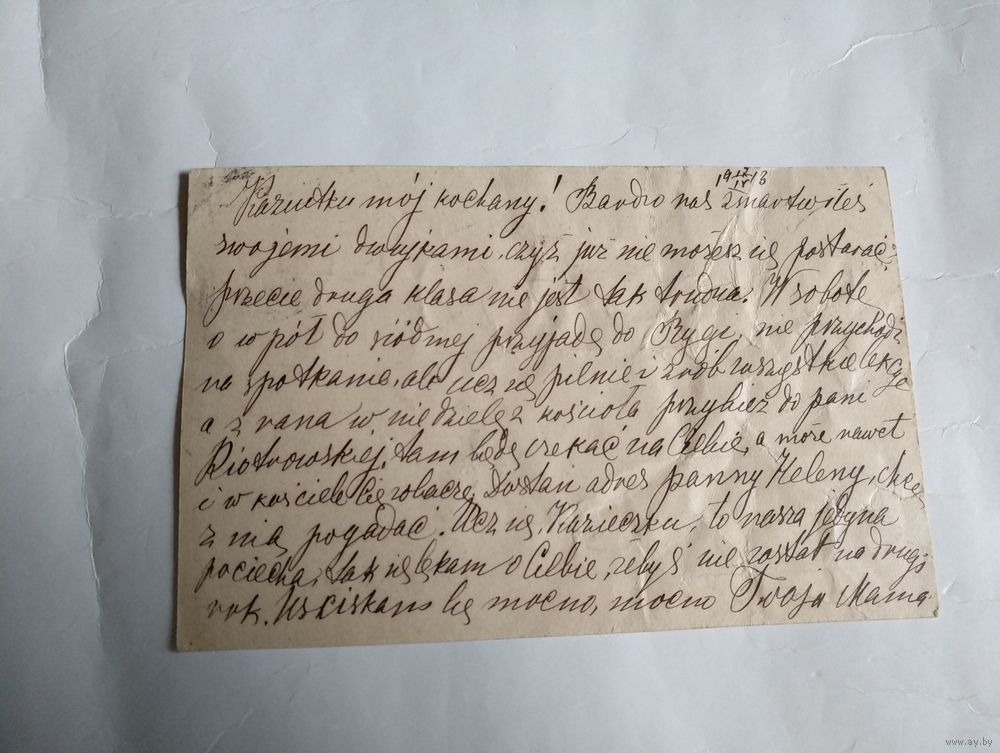 19 17/IV 13
Kaziutku mój kochany! Bardzo nas zmartwiłeś
swojemi dwójkami, czyż już nie możesz się postarać?
przecie druga klasa nie jest tak trudna. W sobotę
o w pół do siódmej przyjadę do Rygi, nie przychodź
na spotkanie, ale ucz się pilnie i zrób wszystkie lekcje
a z rana w niedzielę z kościoła przybież do pani
Piotrowskiej, tam będę czekać na Ciebie, a może nawet
i w kościele Cię zobaczę. Dostań adres panny Heleny, chcę
z nią pogadać. Ucz się, Kazieczku, to nasza jedyna
pociecha, tak się lękam o Ciebie, żebyś nie został na drugi
rok. Uściskam Cię mocno, mocno Twoja Mama
www.ay.by